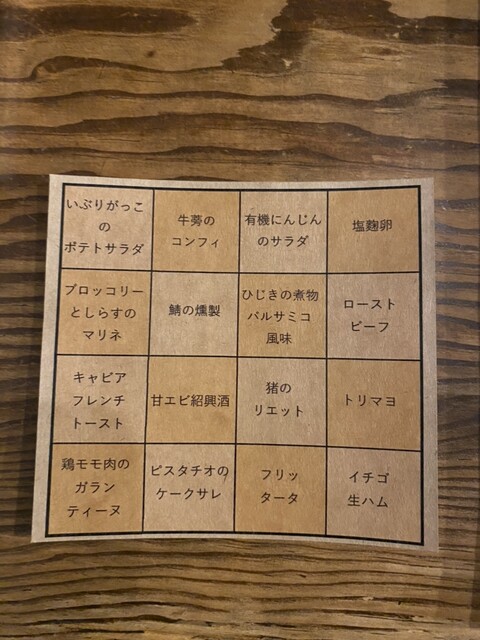 いぶりがっこ
の
ポテトサラダ
牛蒡の
コンフィ
有機にんじん
のサラダ
塩麹卵
ブロッコリー
としらすの
マリネ
鯖の燻製
ひじきの煮物
バルサミコ
風味
ロースト
ビーフ
キャビア
フレンチ
トースト
甘エビ紹興酒
猪の
リエット
トリマヨ
鶏モモ肉の
ガラン
ティーヌ
ピスタチオの
ケークサレ
フリッ
タータ
イチゴ
生ハム